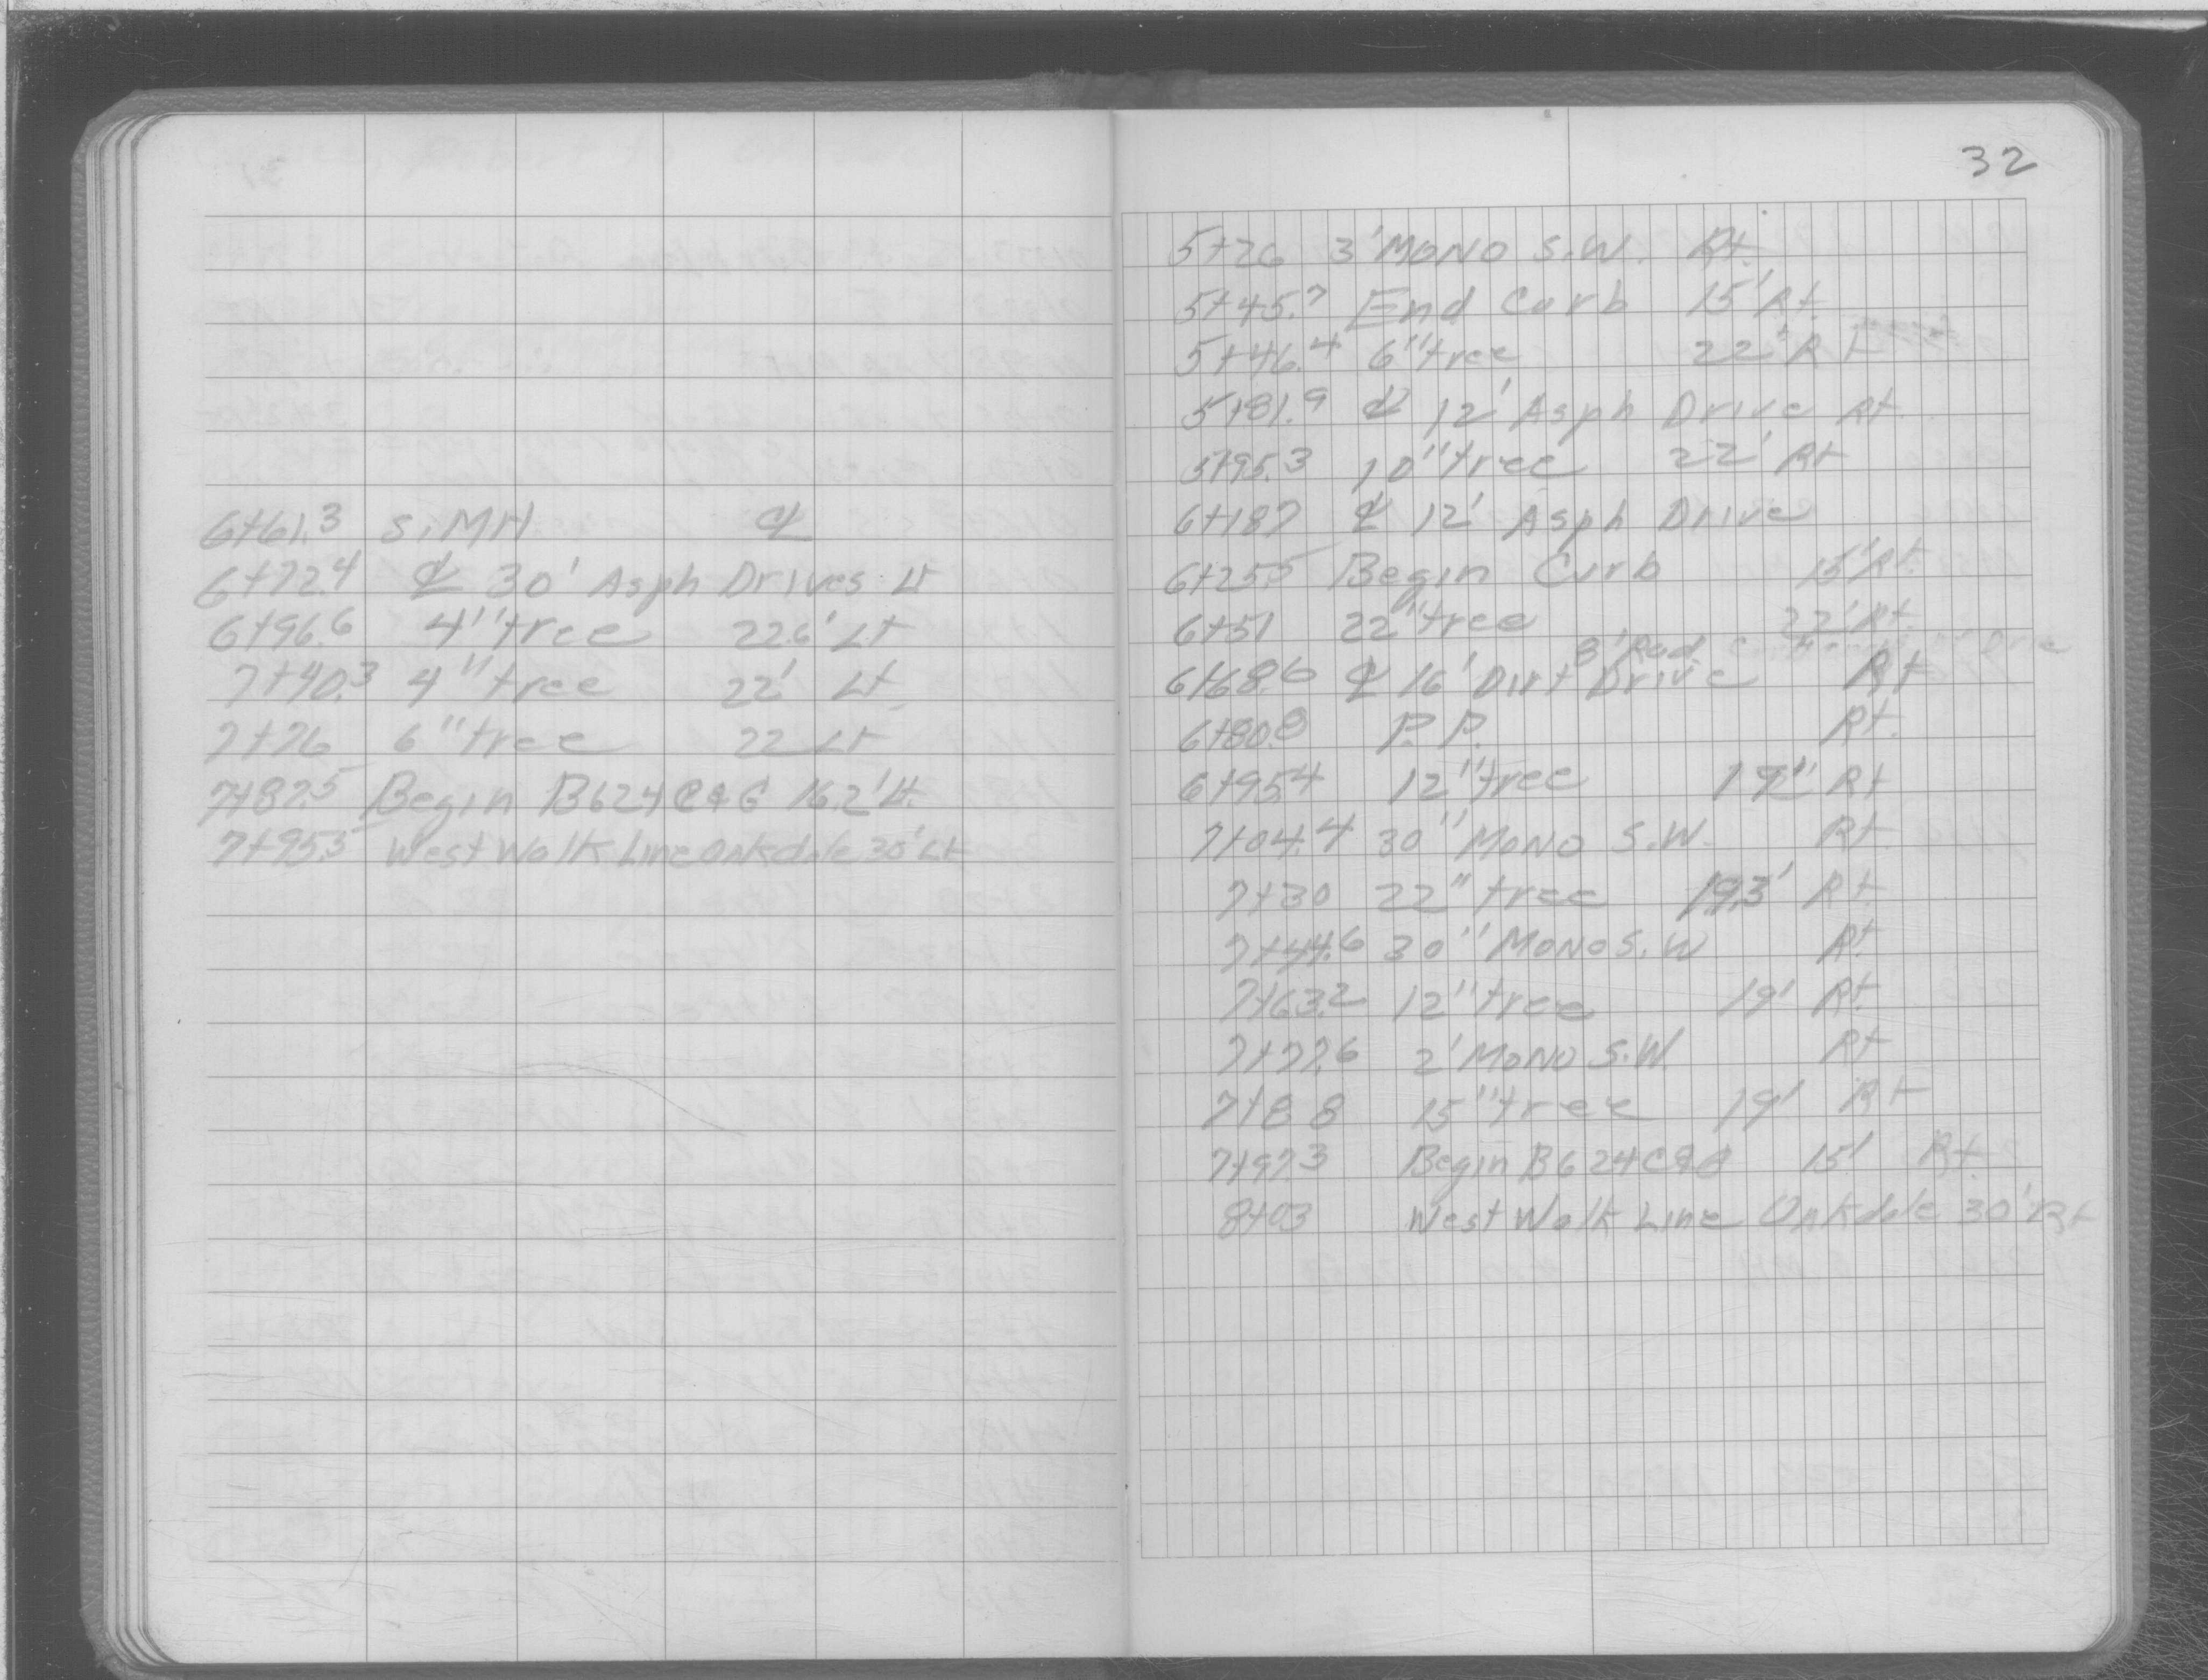 6+61.3 S.MH ℄
6+72.4 ℄ 30' Asph Drives Lt
6+96.6 4" tree 22.6' Lt
7+40.3 4" tree 22' Lt
7+76 6" tree 22 Lt
7+87.5 Begin B624 C&G 16.2' Lt.
7+95.5 West Walk Line Oakdale 30' Lt
32
5+26 3' MONO S.W. Rt.
5+45.7 End Curb 15' Rt.
5+46.4 6" tree 22' Rt
5+81.9 ℄ 12' Asph Drive Rt.
5+95.3 10" tree 22' Rt
6+18.7 ℄ 12' Asph Drive
6+25.5 Begin Curb 15' Rt.
6+51 22" tree 22' Rt.
8' Rad
6+68.6 ℄ 16' Dirt Drive Rt
6+80.8 P.P. Rt.
6+95.4 12" tree 19" Rt
7+04.4 30" MONO S.W. Rt.
7+30 22" tree 19.3' Rt
7+44.6 30" MONO S.W Rt
7+63.2 12" tree 19' Rt
7+77.6 2' MONO S.W. Rt
7+88 15" tree 19' Rt
7+97.3 Begin B624 C&G 15' Rt.
8+03 West Walk Line Oakdale 30' Rt